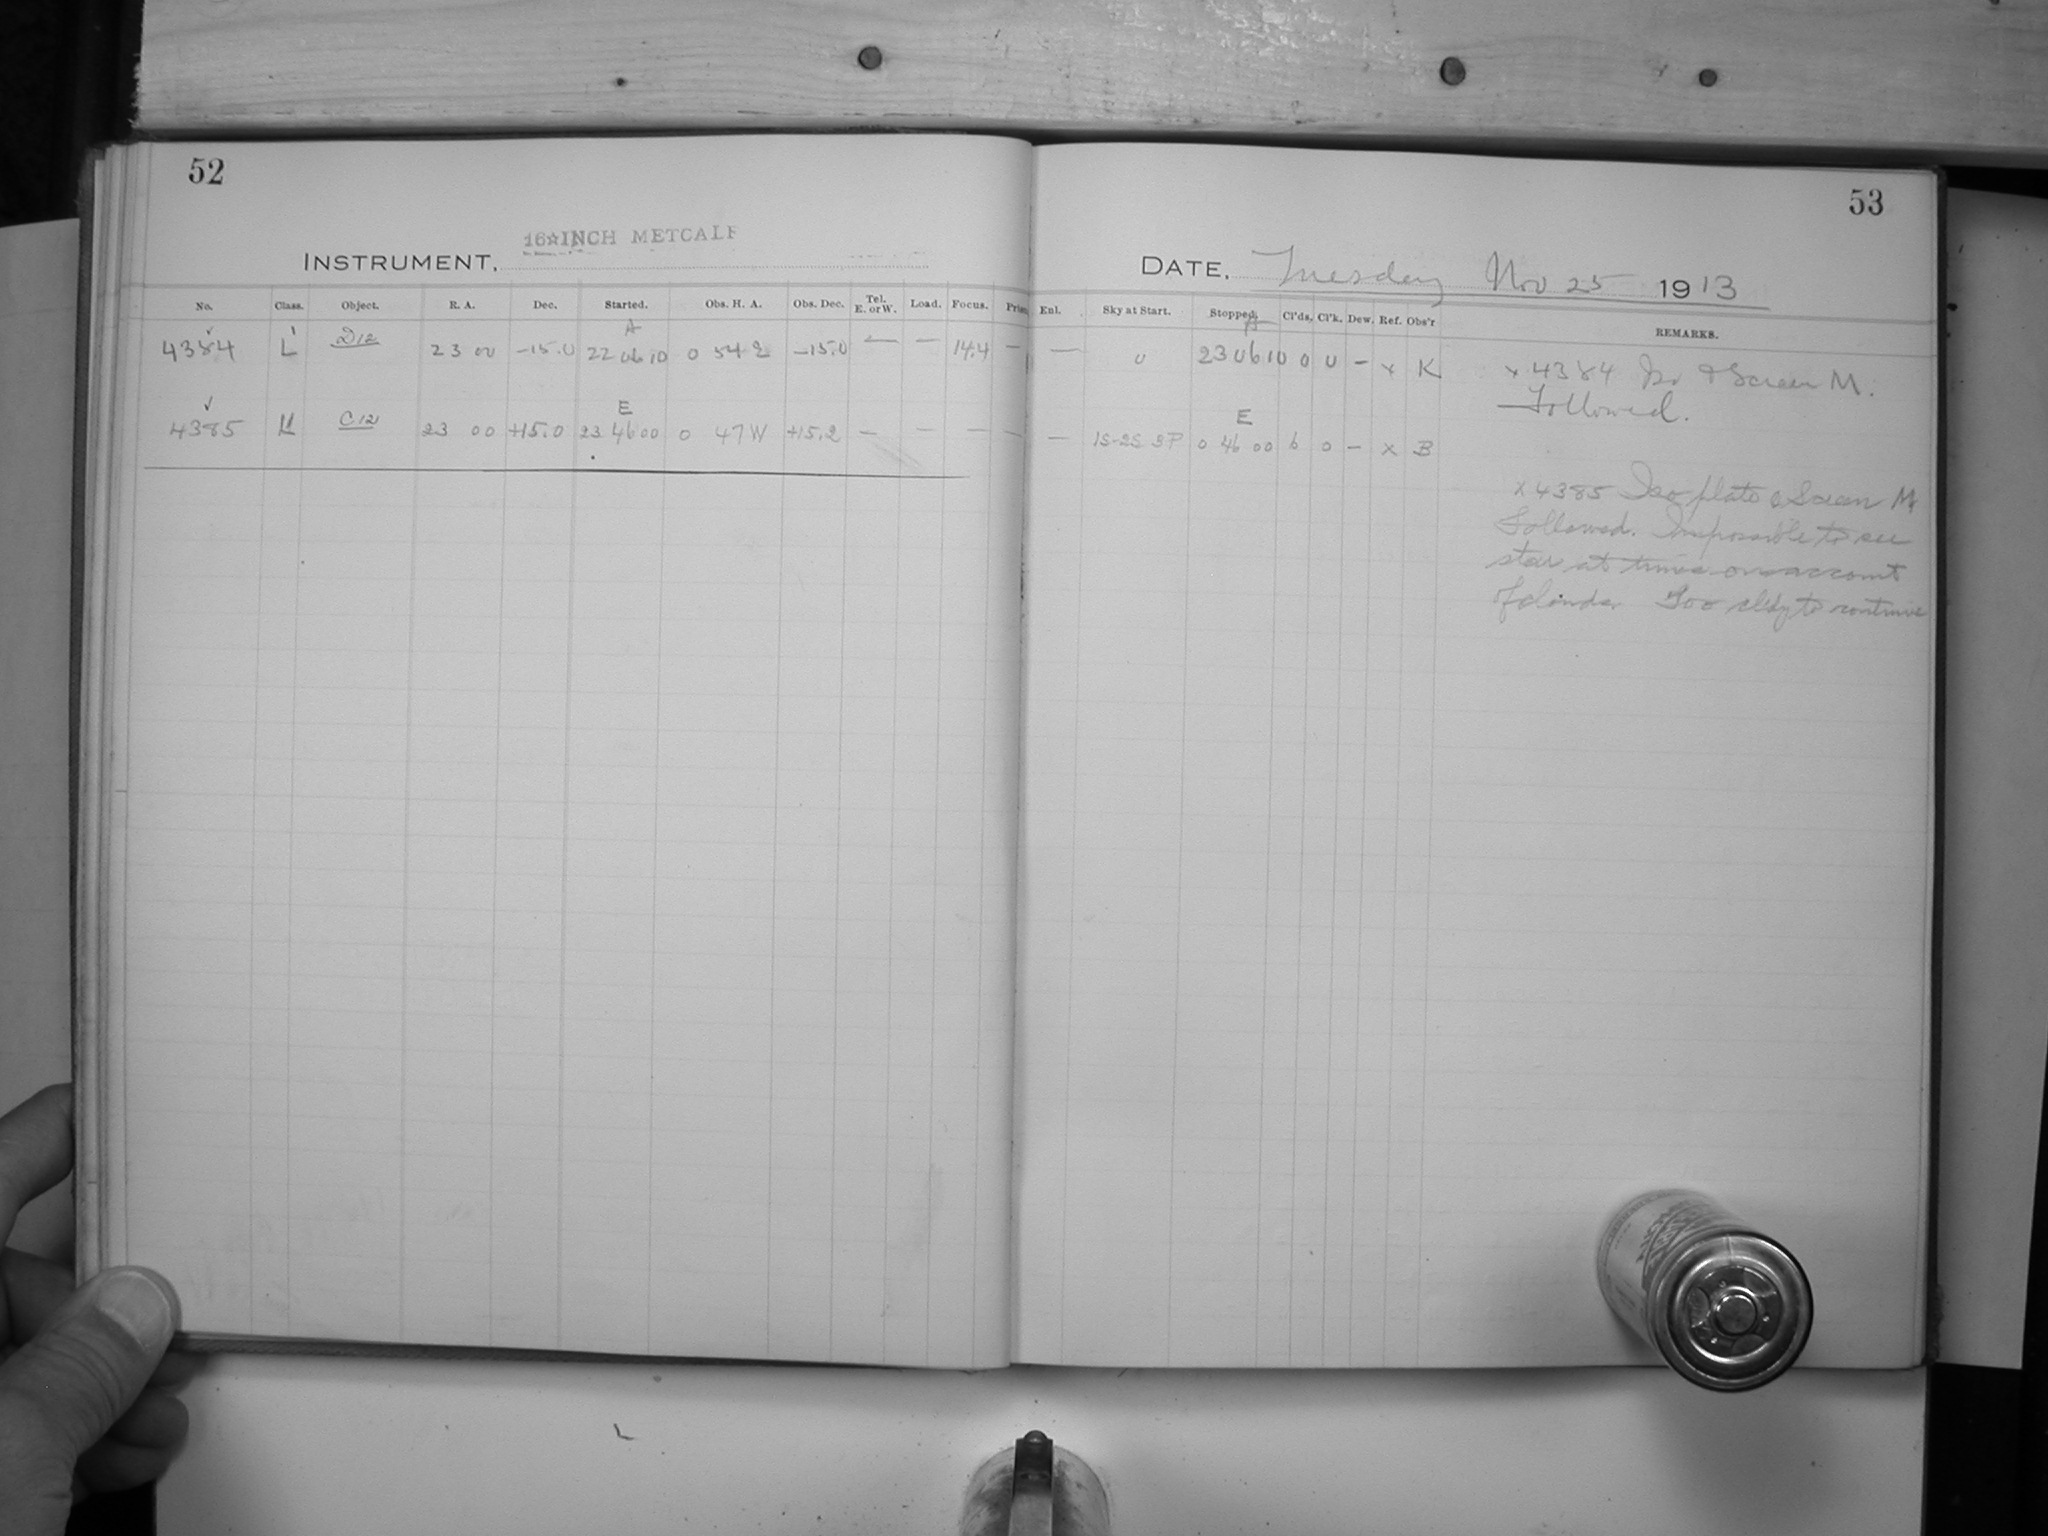 52
53
16☆INCH METCALF
INSTRUMENT,
DATE, Tuesday Nov 25 1913
No. Class. Object. R. A. Dec. Started. Obs. H. A. Obs. Dec. Tel. E. or W. Load. Focus. Enl. Sky at Start. Stopped. Cl'ds. Cl'k. Dew. Ref. Obs'r REMARKS.
A
4384 L D12 23 00 -15.0 22 06 10 0 54 E -15.0 — — 14.4 — — 0 23 06 10 0 0 - x K x 4384 Iso & Screen M.
Followed.
E E
4385 L C12 23 00 +15.0 23 46 00 0 47 W +15.2 — — — — — 1S-2S SP 0 46 00 6 0 - x B
x 4385 Iso plate & Screen M
Followed. Impossible to see
star at times on account
of clouds. Too cldy to continue